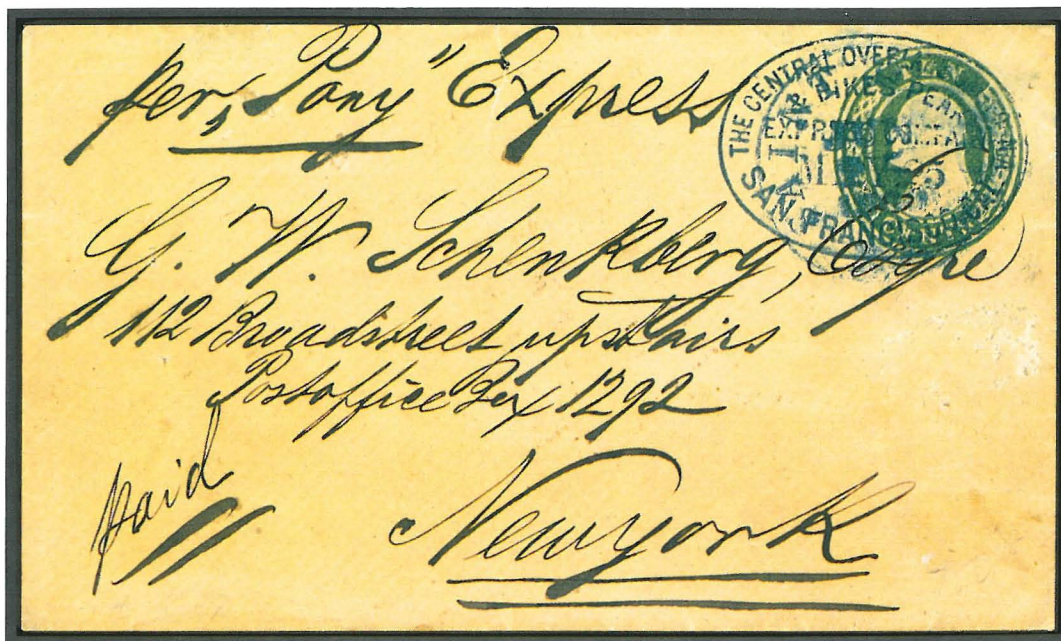 per „Pony" Express
THE CENTRAL OVERL
& PIKES PEAK
EXPRESS COMPA
SAN FRANC
G. W. Schenkberg,
112 Broadstreet upstairs
Postoffice Box 1292
paid
Newyork